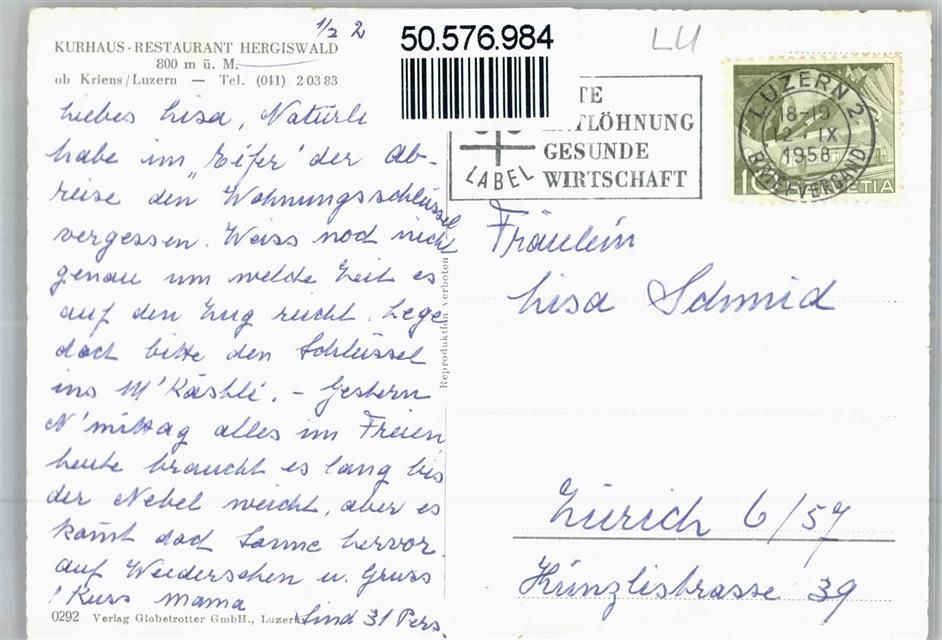 1/2 2
KURHAUS-RESTAURANT HERGISWALD
800 m ü. M.
ob Kriens/Luzern — Tel. (041) 2 03 83
50.576.984
LU
Liebes Lisa, Natürli
habe im "Eifer' der Ab-
reise den Wohnungsschlüssel
vergessen. Weiss noch nicht
genau um welche Zeit es
auf den Zug reicht. Lege
doch bitte den Schlüssel
ins M'Kästli. – Gestern
N'mittag alles im Freien
heute braucht es lang bis
der Nebel weicht, aber es
kommt doch Sonne hervor.
auf Wiedersehen u. Gruss
! Kuss Mama
Sind 31 Pers.
0292 Verlag Globetrotter GmbH., Luzern
Reproduktion verboten
TE
ENTLÖHNUNG
GESUNDE
WIRTSCHAFT
LABEL
LUZERN 2
18-19
12. IX
1958
BRIEFVERSAND
10
HELVETIA
Fräulein
Lisa Schmid
Zürich 6/57
Künzlistrasse 39